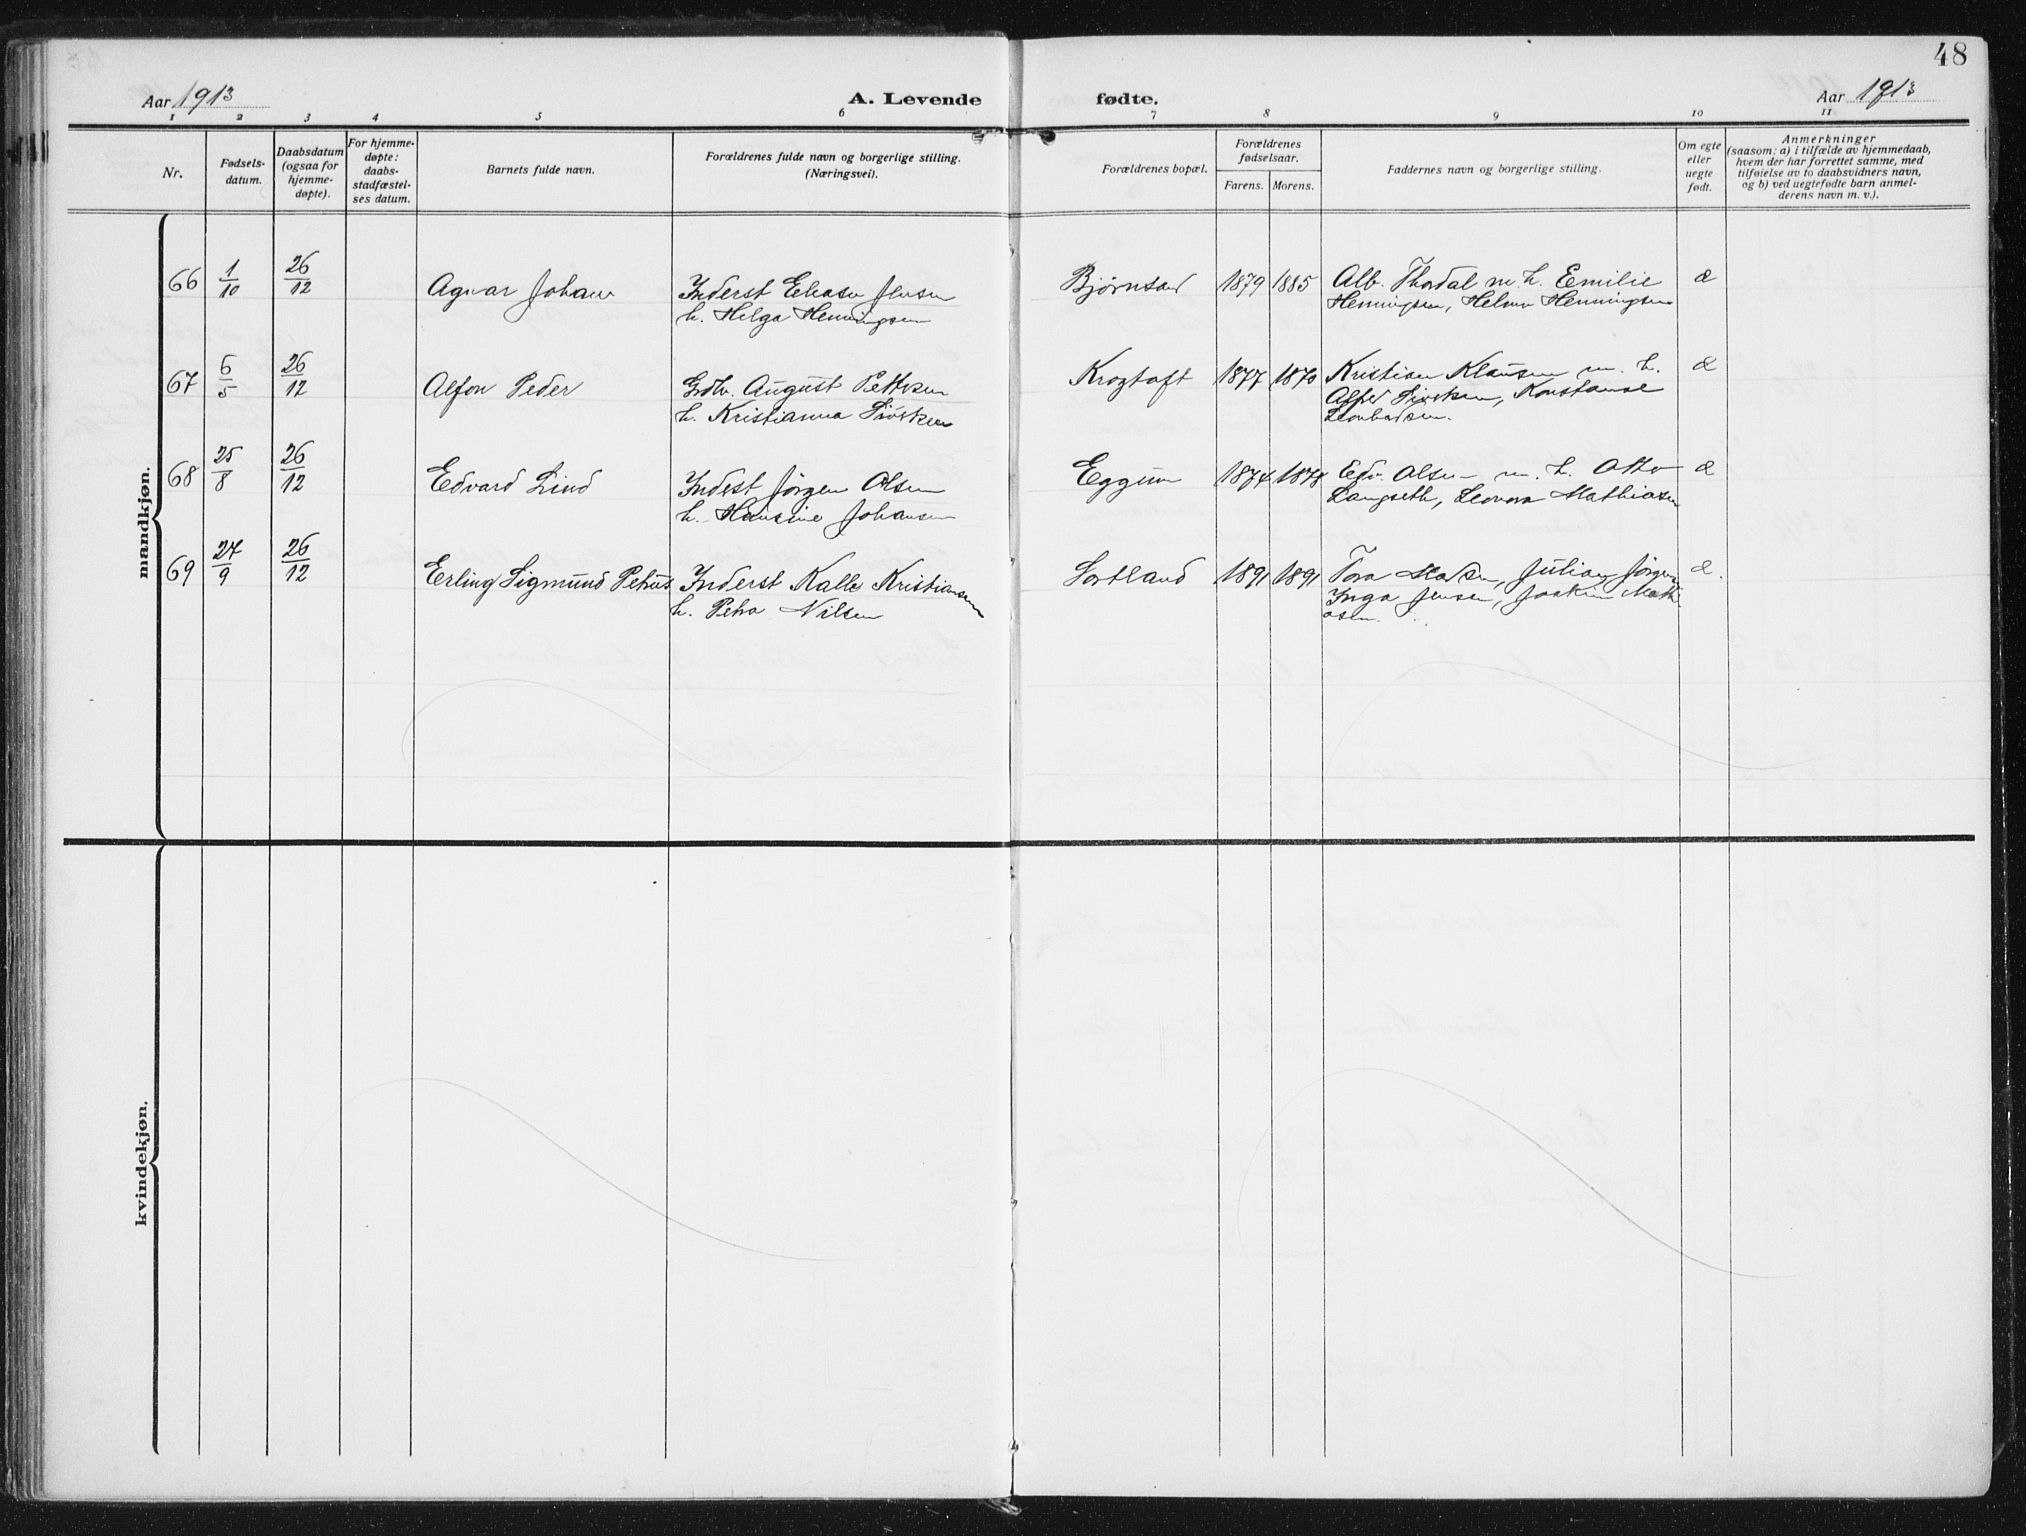 48
Aar 1913
A. Levende fødte.
Aar 1913
1 2 3 4 5 6 7 8 9 10 11
Nr.
Fødsels-
datum.
Daabsdatum
(ogsaa for
hjemme-
døpte).
For hjemme-
døpte:
daabs-
stadfæstel-
ses datum.
Barnets fulde navn.
Forældrenes fulde navn og borgerlige stilling.
(Næringsvei).
Forældrenes bopæl.
Forældrenes
fødselsaar.
Farens. Morens.
Faddernes navn og borgerlige stilling.
Om egte
eller
uegte
født.
Anmerkninger
(saasom: a) i tilfælde av hjemmedaab,
hvem der har forrettet samme, med
tilføielse av to daabsvidners navn,
og b) ved uegtefødte barn anmel-
derens navn m. v.).
mandkjøn.
66 1/10 26/12 Agnar Johan Inderst Jensen Bjørnsand 1879 1885 Alb. Thodal m. h. Emilie æ
h. Helga Henningsen Henningsen, Helmer Henningsen
67 6/5 26/12 Alfon Peder Grdbr. August Pettersen Krogtoft 1877 1870 Kristian Klausen m. h. æ
h. Kristianna Alfred Konstanse
68 25/8 26/12 Edvard Lind Inderst Jørgen Olsen Eggum 1874 1878 Edv. Olsen m. h. Otto æ
h. Hansine Johansen Langseth, Leonora Mathiasen
69 27/9 26/12 Erling Sigmund Petrus Inderst Kalle Kristiansen Sortland 1891 1891 Tora Madsen, Julian Jørgens æ.
h. Petra Nilsen Inga Jensen, Joakim Math
asen.
kvindekjøn.